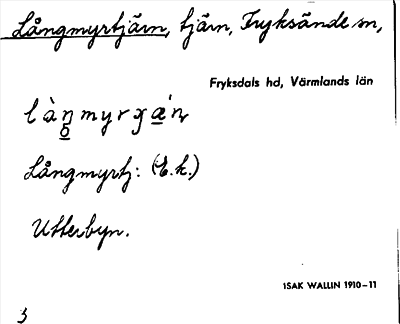 Långmyrtjärn, tjärn, Fryksände sn,
Fryksdals hd, Värmlands län
Långmyrtj: (E.k.)
Utterbyn.
ISAK WALLIN 1910–11